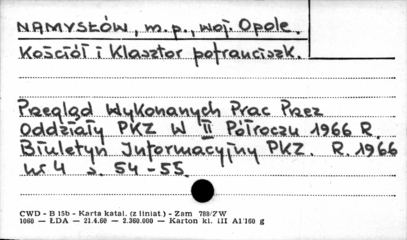 NAMYSŁÓW, m.p., woj. Opole.
Kościół i Klasztor pofranciszk.
Przegląd Wykonanych Prac Przez
Oddziały PKZ W II Półroczu 1966 R.
Biuletyn Informacyjny PKZ. R. 1966
nr 4 s. 54-55.
CWD - B 15b - Karta katal. (z liniat.) - Zam 788/ZW
1068 — ŁDA — 21.4.60 — 2.360.000 — Karton kl. III A1 160 g